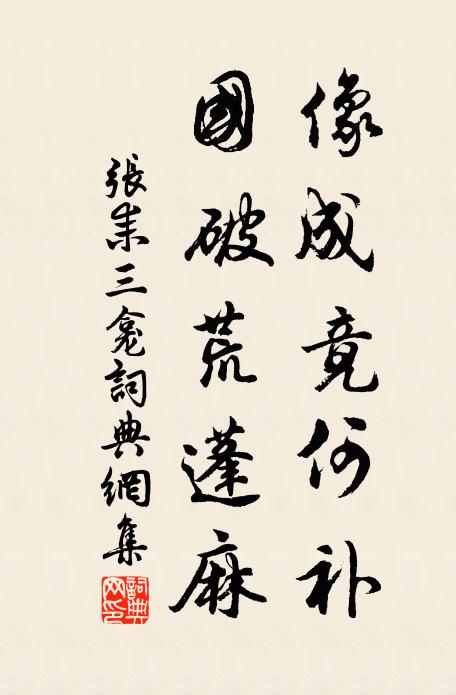 像成竟何补
國破荒蓬麻
張耒三龛詞典網集
詞典网印